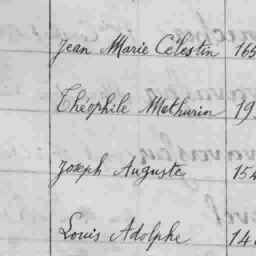 Jean Marie Célestin 165
Théophile Mathurin 19
Joseph Auguste 154
Louis Adolphe 14